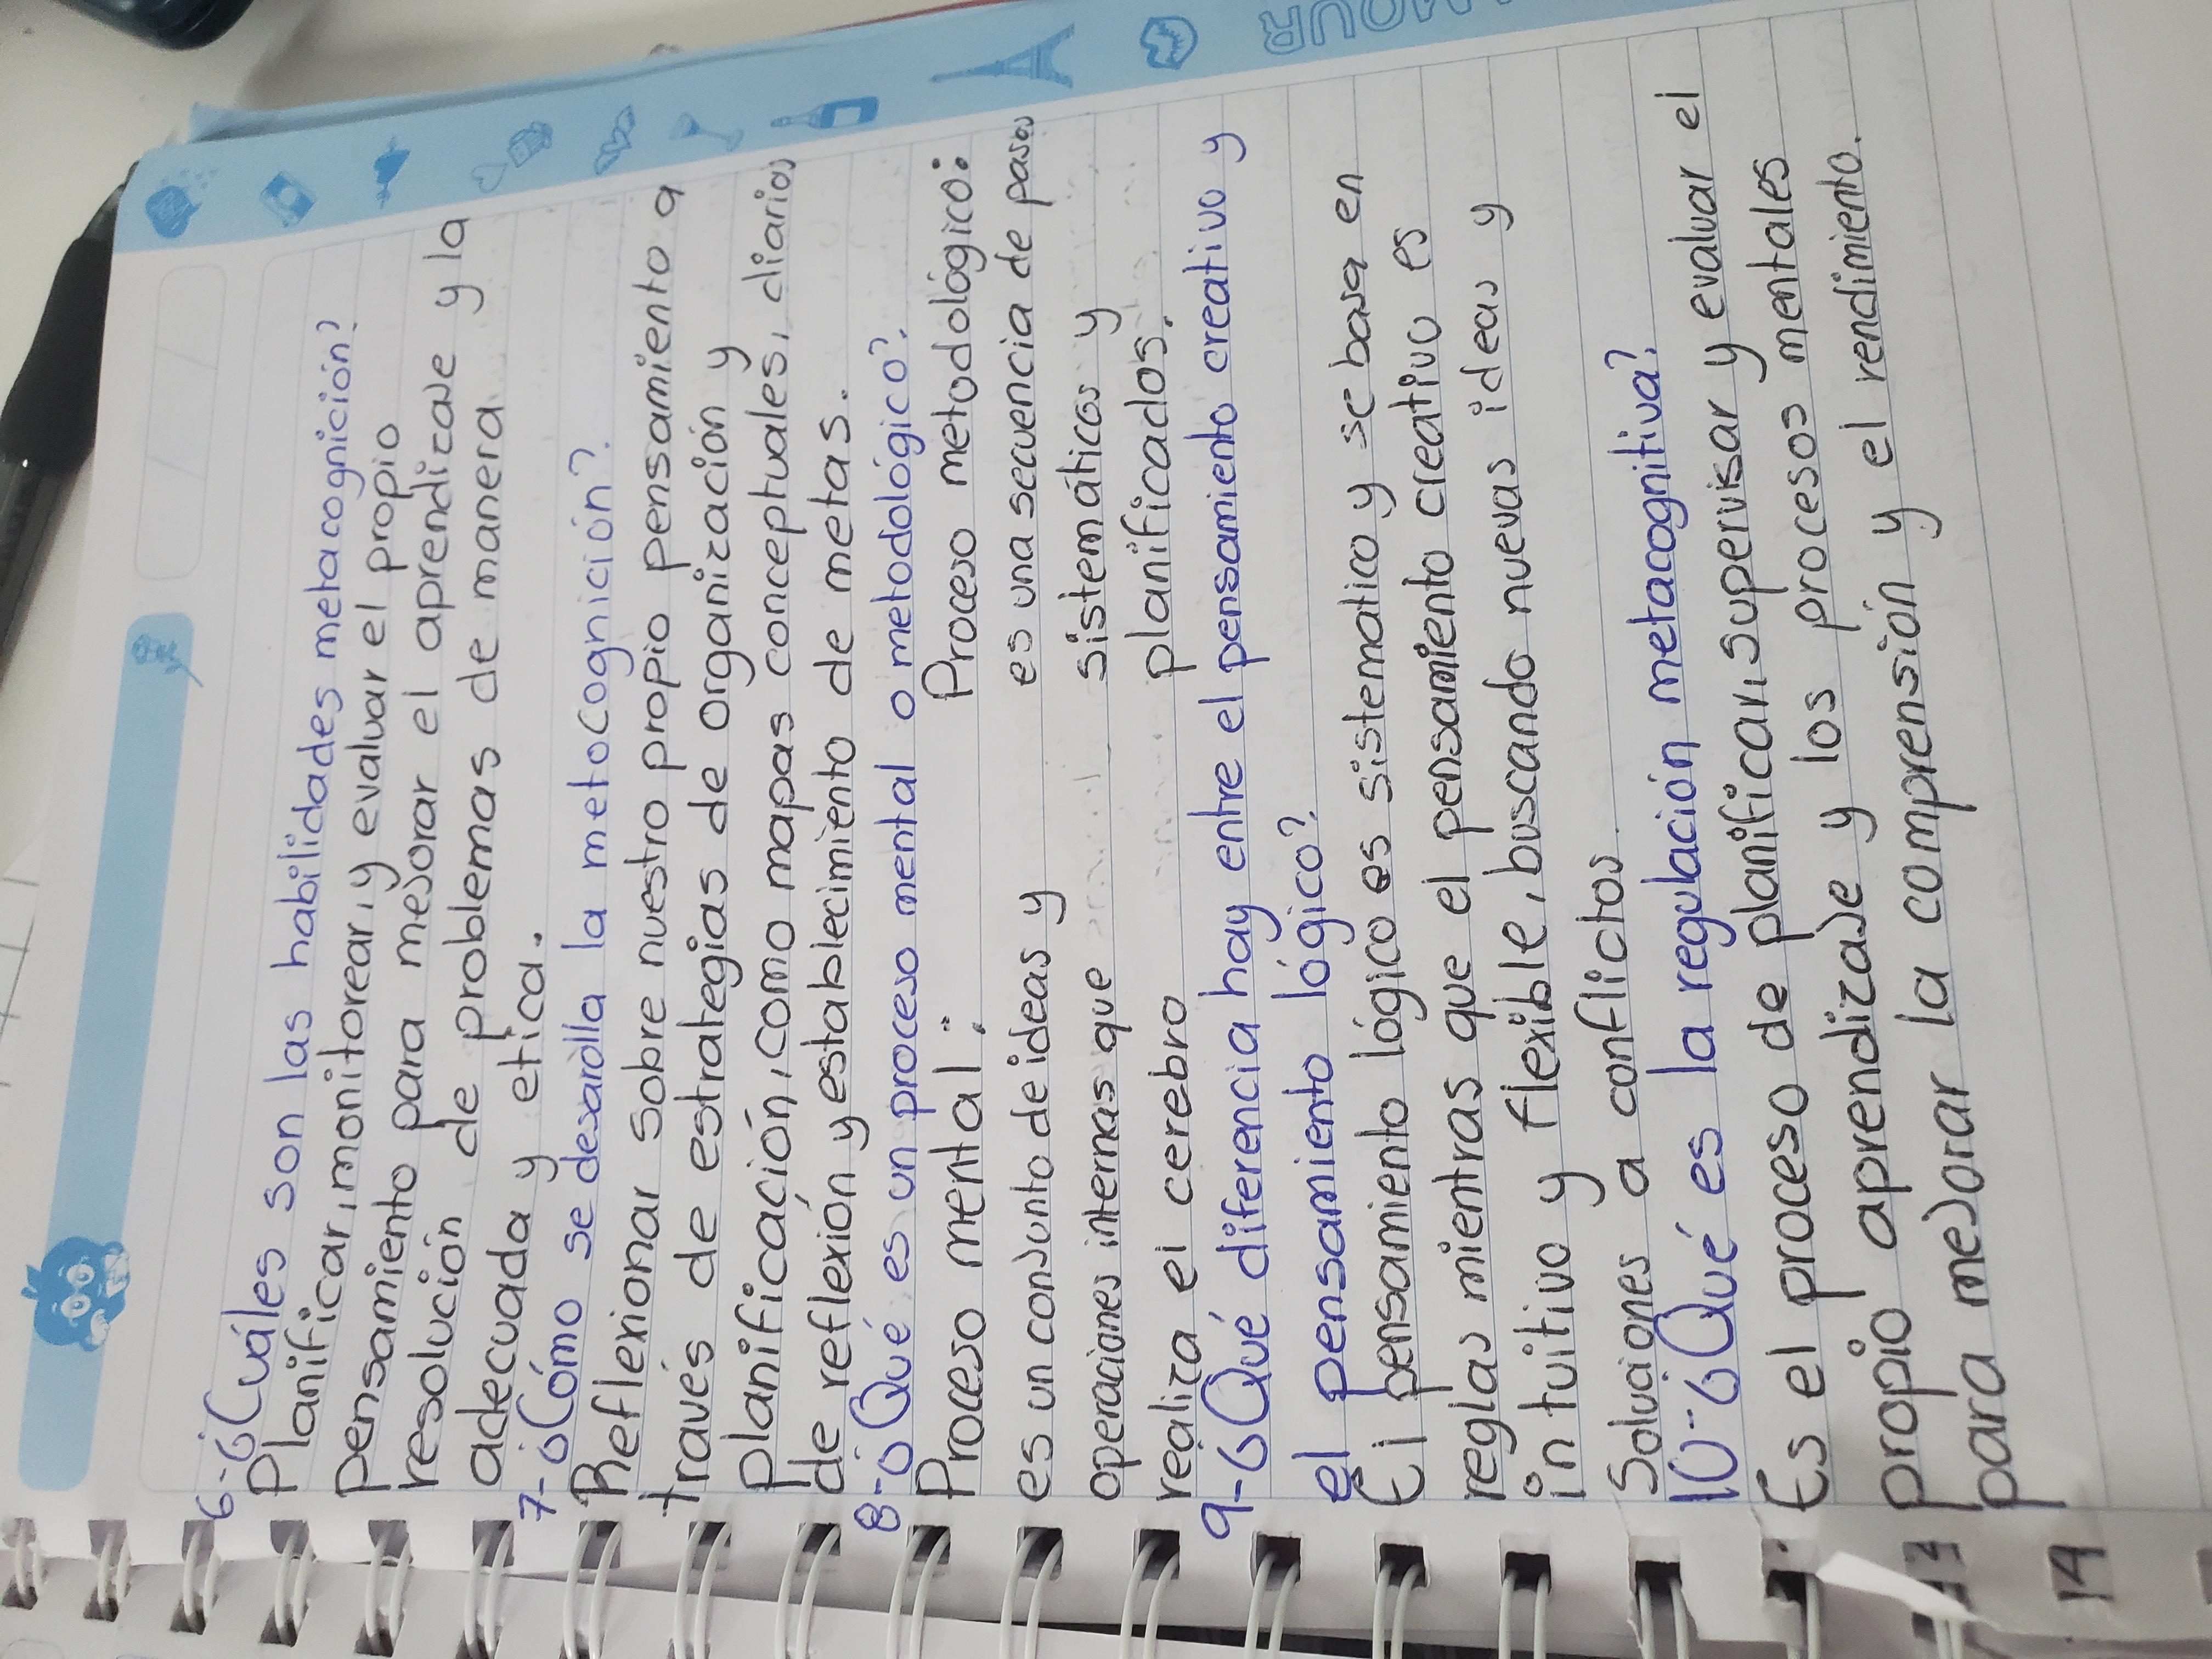 6-¿Cuáles son las habilidades metacognición?
Planificar, monitorear, y evaluar el propio
pensamiento para mejorar el aprendizaje y la
resolución de problemas de manera
adecuada y etica.
7-¿Cómo se desarolla la metocognición?
Reflexionar sobre nuestro propio pensamiento a
través de estrategias de organización y
planificación, como mapas conceptuales, diarios
de reflexión y establecimiento de metas.
8-¿Qué es un proceso mental o metodológico?
Proceso mental: Proceso metodológico:
es un conjunto de ideas y es una secuencia de pasos
operaciones internas que sistemáticos y
realiza el cerebro planificados.
9-¿Qué diferencia hay entre el pensamiento creativo y
el pensamiento lógico?
El pensamiento lógico es sistematico y se basa en
reglas mientras que el pensamiento creativo es
intuitivo y flexible, buscando nuevas ideas y
Soluciones a conflictos
10-¿Qué es la regulación metacognitiva?
Es el proceso de planificar, supervisar y evaluar el
propio aprendizaje y los procesos mentales
para mejorar la comprensión y el rendimiento.
14